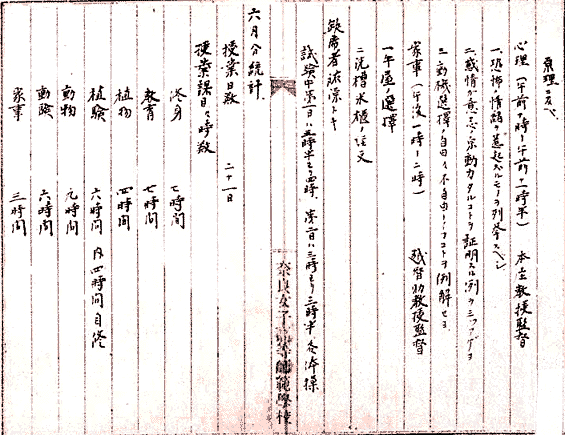 原理ヲ述ベ
心理(午前 時ー午前十一時半) 本庄教授監督
一.恐怖ノ情緒ヲ惹起スルモノヲ列挙スベシ
二.感情ガ意志ノ原動力タルコトヲ証明スル例ヲ三ツアゲヨ
三.動機選擇ノ自由ト不自由トイフコトヲ例解セヨ
家事(午後一時ー二時) 越智助教授監督
一.午 ノ選擇
二.洗槽水槽ノ注文
欠席者 トキ
試験中第一日ハ五時半ヨリ四時、第二日ハ三時ヨリ三時半 体操
奈良女子高等師範學校
六月分統計.
授業日数 二十一日
授業課目ト時数
修身 七時間
教育 七時間
植物 四時間
植験 六時間 内四時間自修
動物 九時間
動験 六時間
家事 三時間